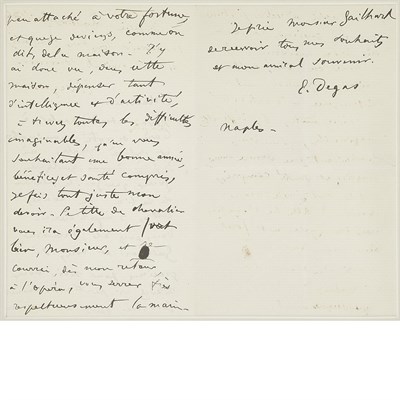 peu attaché à votre fortune
et que je deviens, comme on
dit, de la maison. J'y
ai donc vu, dans cette
maison, dépenser tant
d'intelligence et d'activité,
à travers toutes les difficultés
imaginables, qu'en vous
souhaitant une bonne année,
bénéfices et santé compris,
je fais tout juste mon
devoir. Le titre de chevalier
vous ira également fort
bien, Monsieur, et je
courrai, dès mon retour,
à l'Opéra, vous serrer très
respectueusement la main.
Je prie Monsieur Gailhard
de recevoir tous mes souhaits
et mon amical souvenir.
E. Degas
Naples -